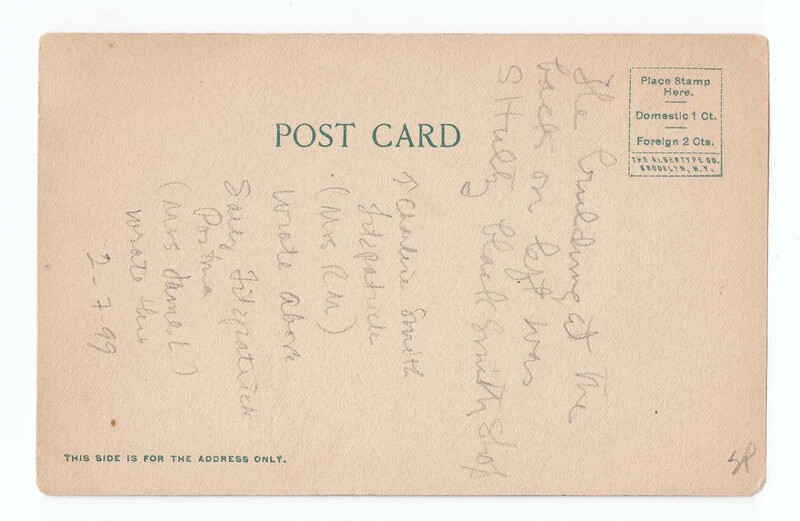 POST CARD
Place Stamp
Here.
Domestic 1 Ct.
Foreign 2 Cts.
THE ALBERTYPE CO.
BROOKLYN, N.Y.
The building at the
back on left was
Shultz black smith shop
↑ Charline Smith
Fitzpatrick
(Mrs R M)
wrote above
Sally Fitzpatrick
Postma
(Mrs James L)
wrote this
2-7-99
THIS SIDE IS FOR THE ADDRESS ONLY.